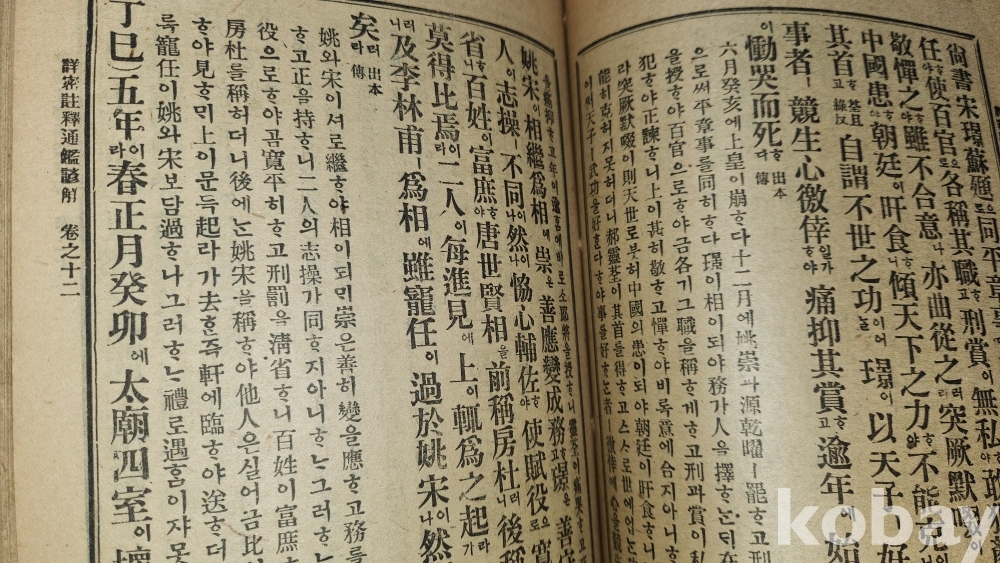 尙書宋璟蘇頲으로同平章事
任하야使百官으로各稱其職하고刑賞이無私하고敢
敬憚之하야雖不合意나亦曲從之러라突厥默啜이
中國患하야朝廷이旰食하니傾天下之力하야도不能克이러니
其首하고自謂不世之功이어늘璟이以天子好
事者ㅣ競生心徼倖일가하야痛抑其賞하고逾年에始
이慟哭而死하다
六月癸亥에上皇이崩하다十二月에姚崇과源乾曜ㅣ罷하고刑
으로써平章事를同히하다璟이相이되야務가人을擇하는디在
을授하야百官으로하야금各기그職을稱하게하고刑과賞이私
犯하야正諫하니上이甚히敬하고憚하야비록意에合지아니하나
라突厥默啜이則天世로븟허中國의患이되야朝廷이旰食하니
能히克허지못허더니郝靈荃이其首를得하고스스로世에업는
姚宋이相繼爲相에崇은善應變成務하고璟은善守
人이志操ㅣ不同이나然이나協心輔佐하야使賦役으로寬
省하니百姓이富庶하야唐世賢相을前稱房杜러니後稱
莫得比焉이라二人이每進見에上이輒爲之起가라
及李林甫ㅣ爲相에雖寵任이過於姚宋이나然
矣러라
姚와宋이서로繼하야相이되믹崇은善히變을應하고務를
하고正을持하니二人의志操가同하지아니하는그러하는
役으로하야곰寬平히하고刑罰을淸省하니百姓이富庶
房杜를稱허더니後에는姚宋을稱하야他人은실어금比
하야見하믹上이문득起라가去하는즉軒에臨하야送하더
록寵任이姚와宋보담過하나그러하는禮로遇함이쟈못
丁巳五年이라春正月癸卯에太廟四室이壞
詳密註釋通鑑諺解 卷之十二
kobay